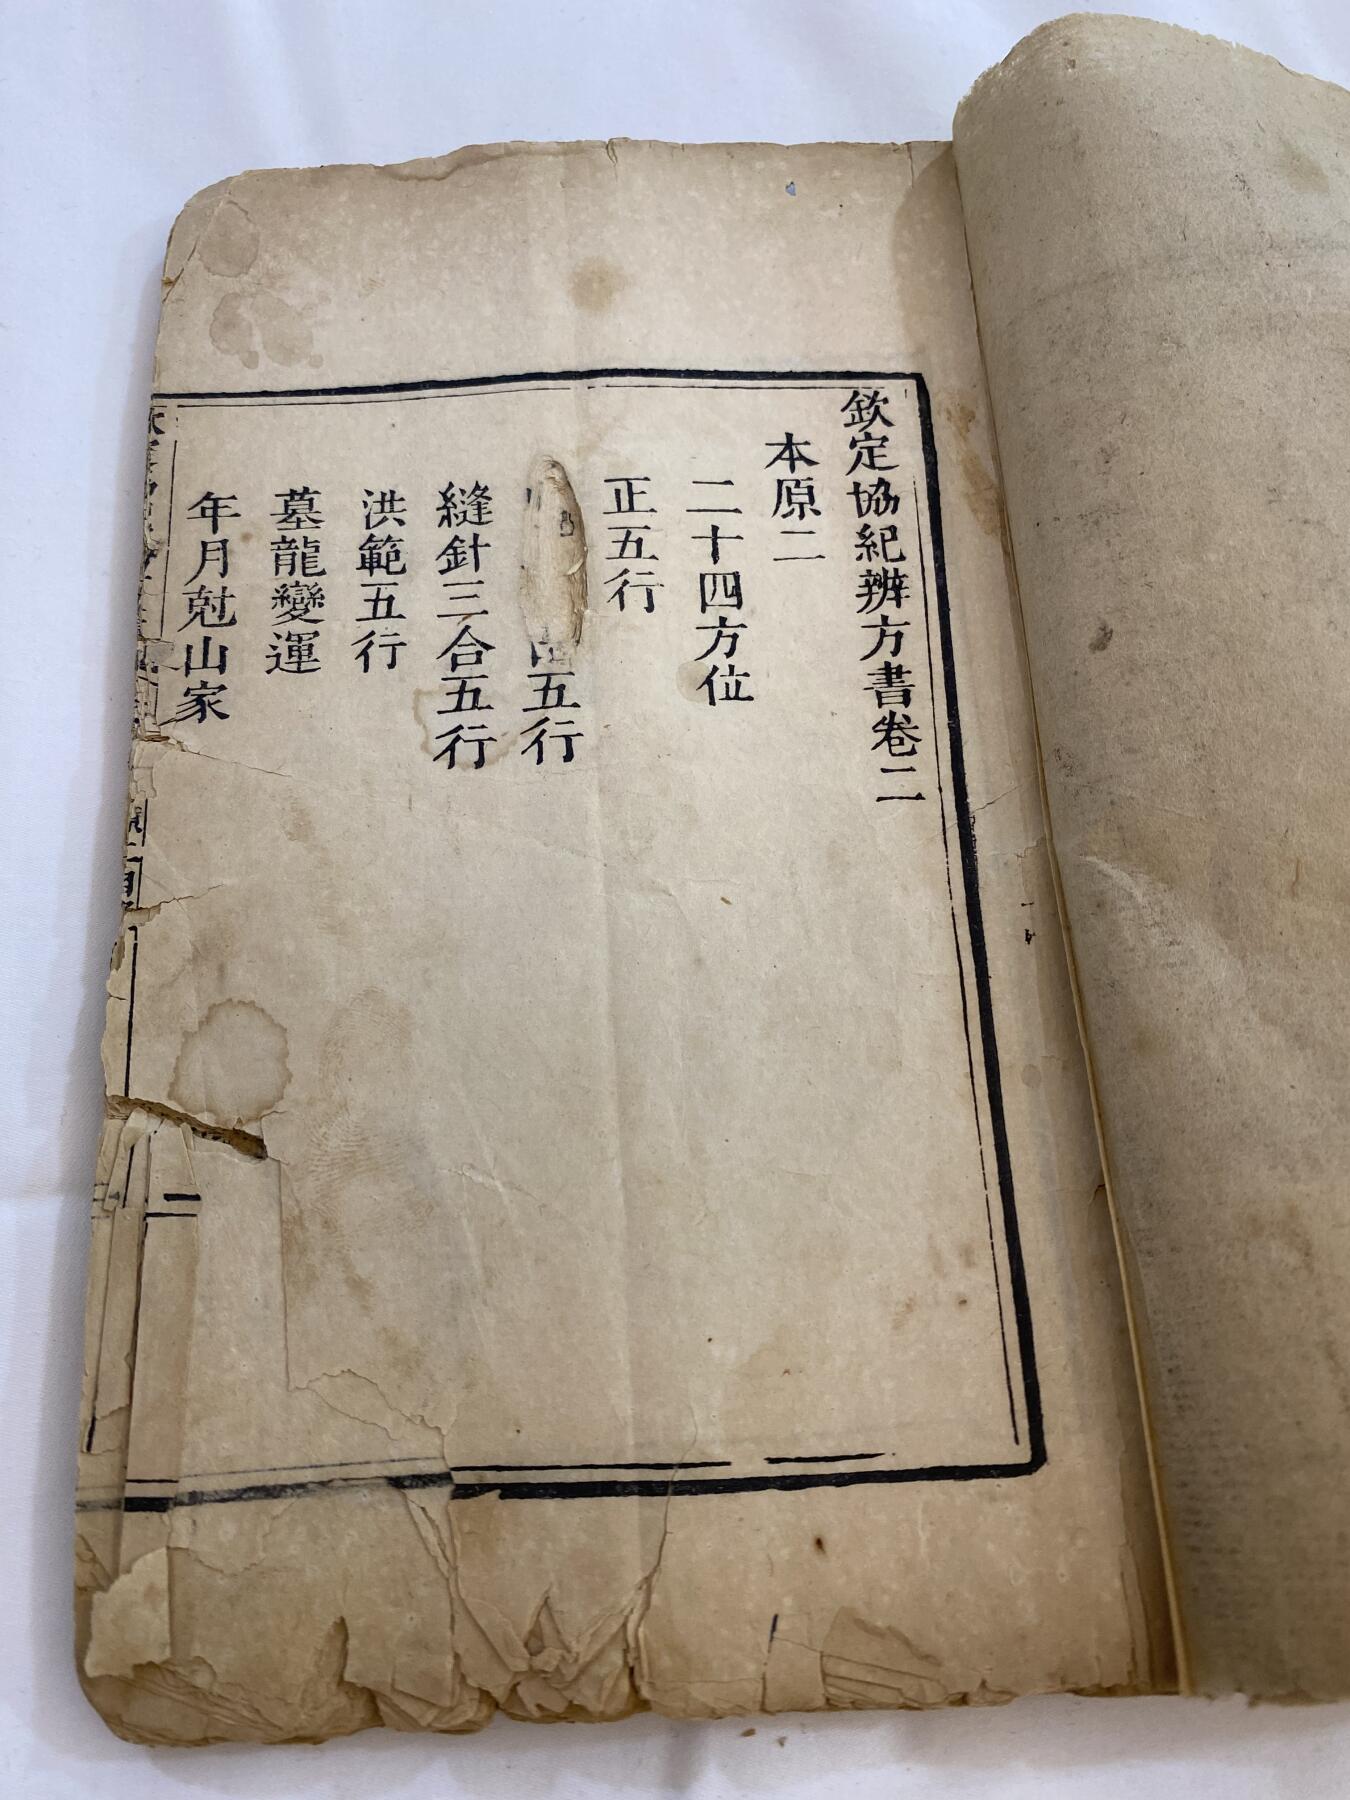 欽定協紀辨方書卷二
本原二
二十四方位
正五行
五行
縫針三合五行
洪範五行
墓龍變運
年月尅山家
二